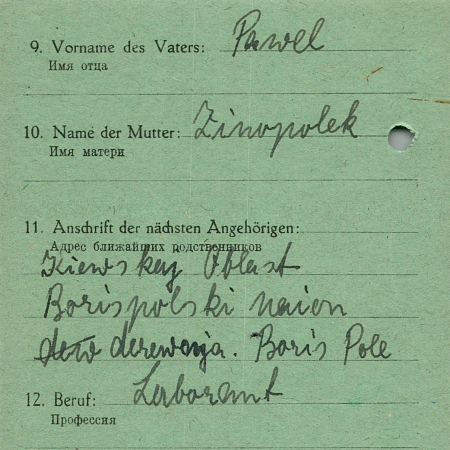 9. Vorname des Vaters: Pawel
Имя отца
10. Name der Mutter: Zinopolek
Имя матери
11. Anschrift der nächsten Angehörigen:
Адрес ближайших родственников
Kiewskaj Oblast
Borispolski naion
derewnja. Boris Pole
12. Beruf: Laborant
Профессия